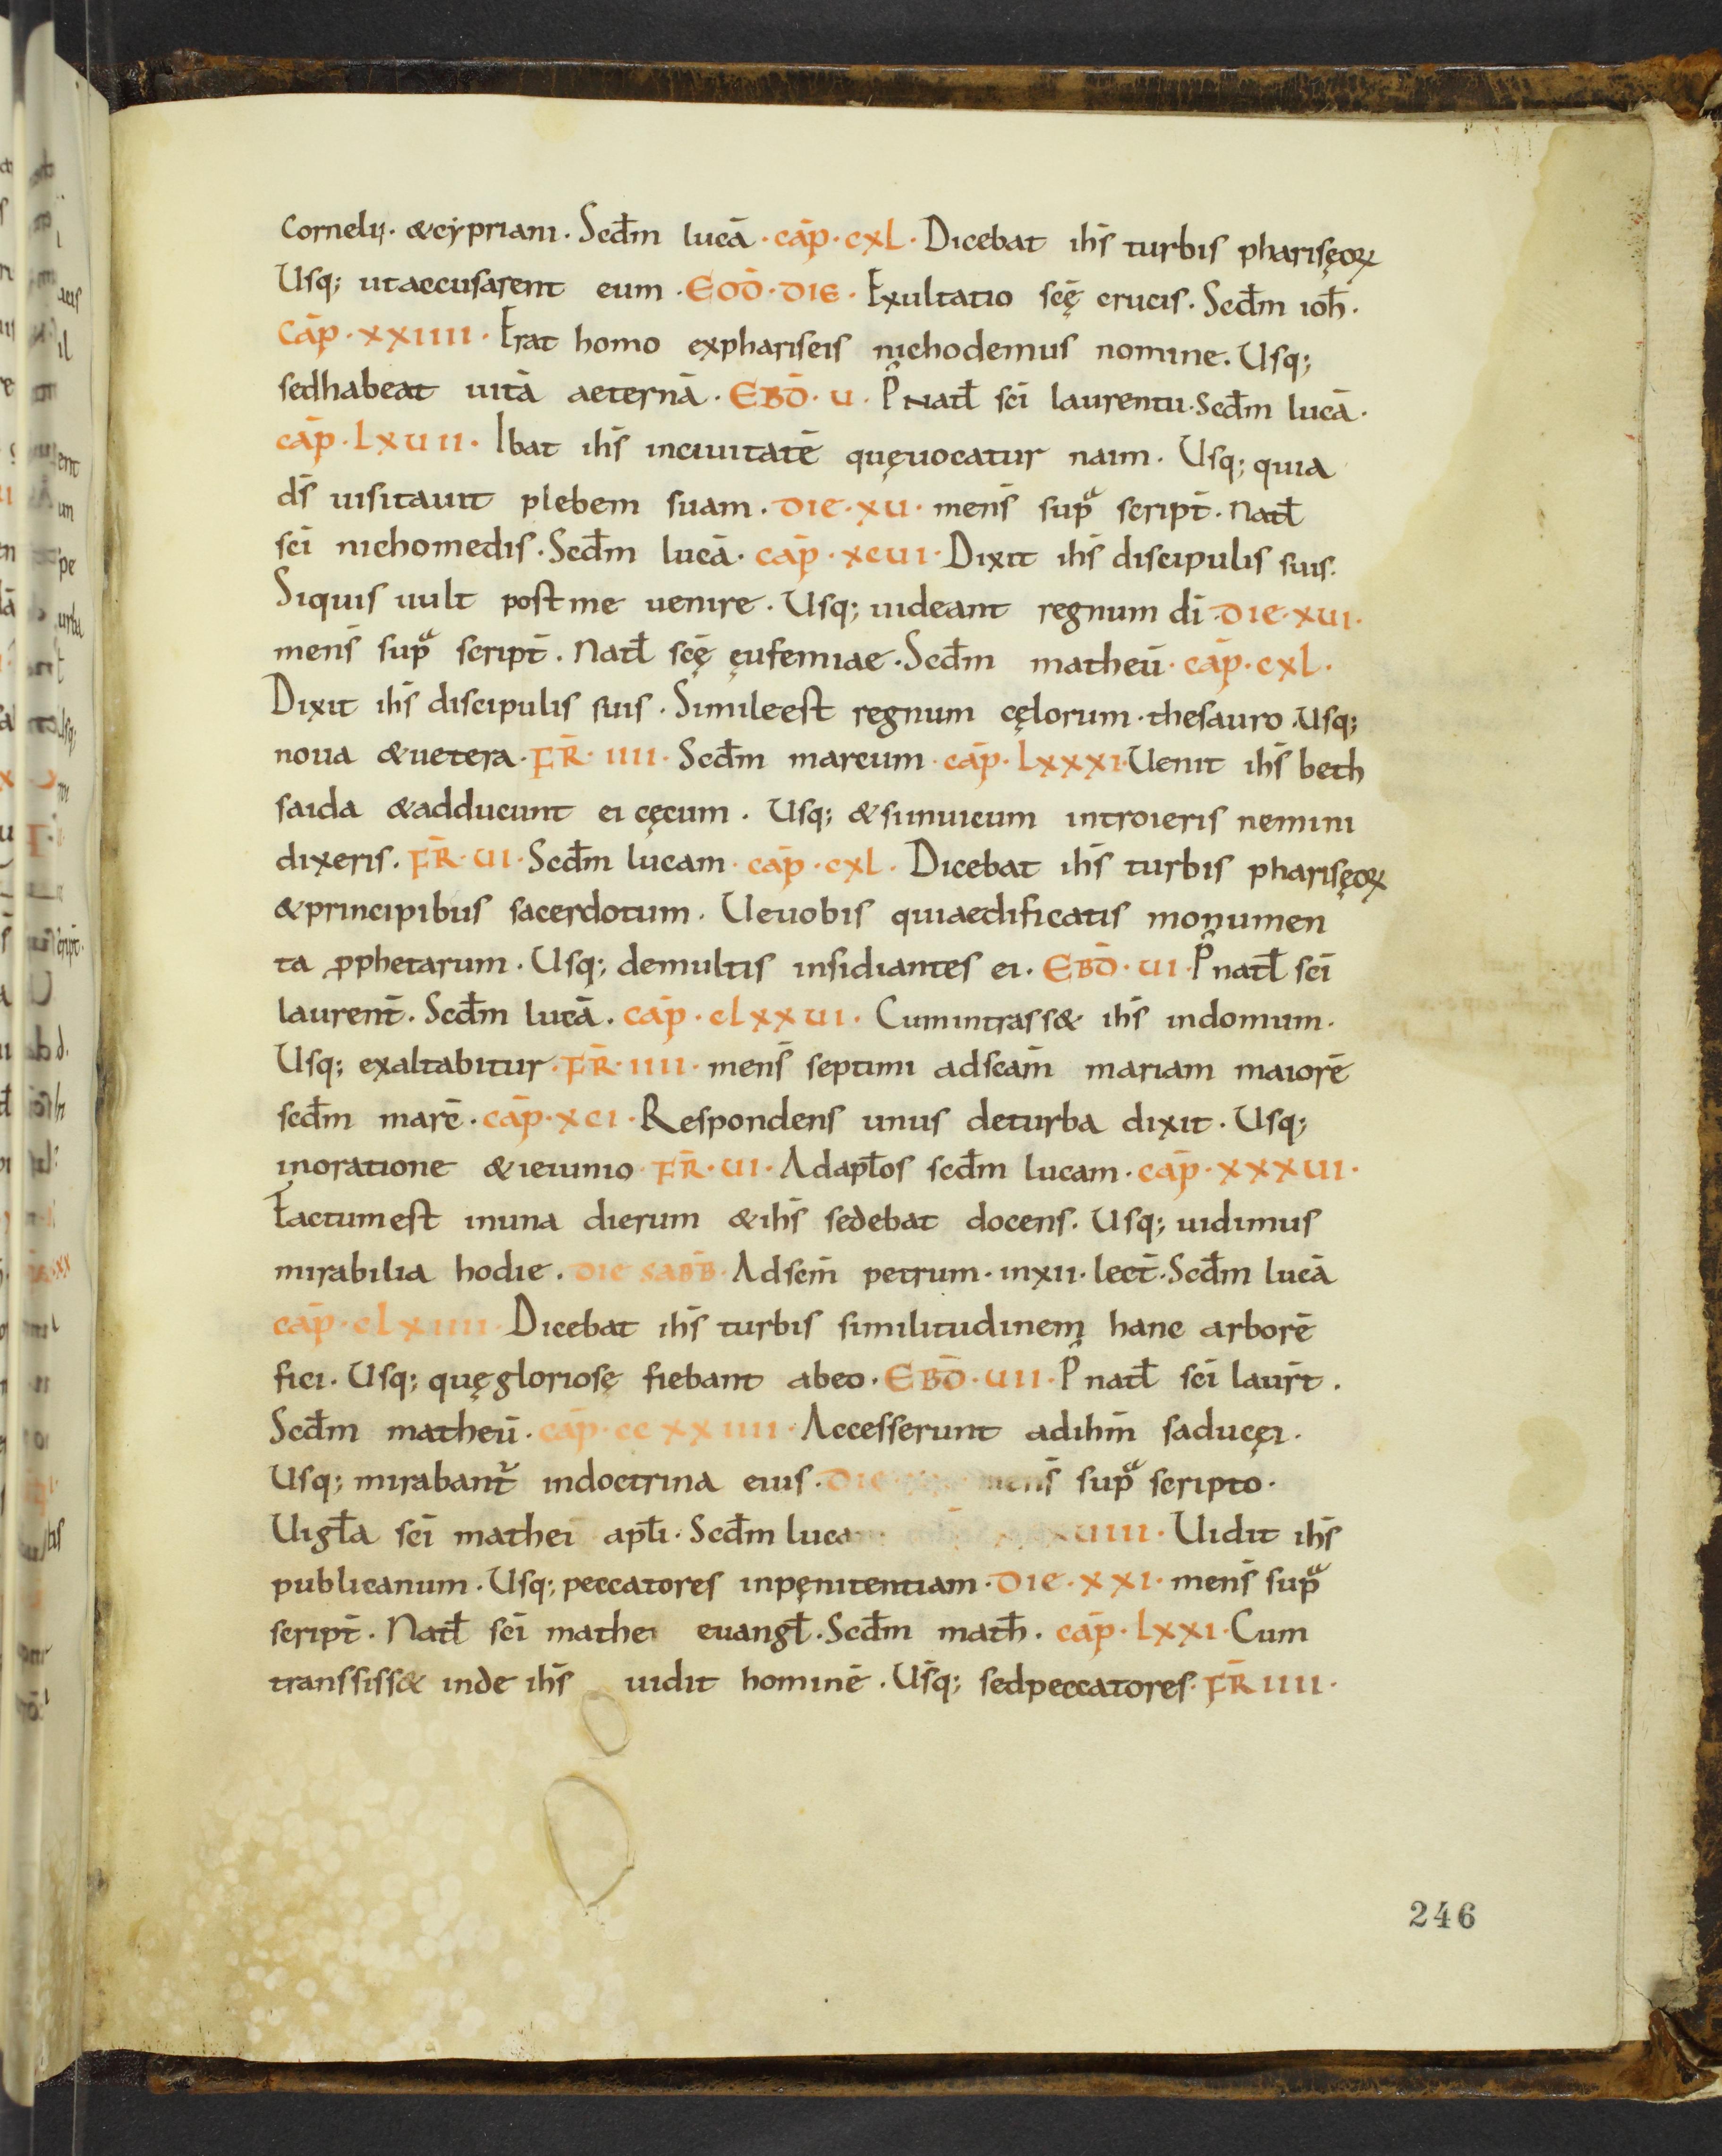 cornelij · & cẏpriani · Scđm lucā · cap̄ · cxl · Dicebat ih̄s turbis pharisęoꝝ
Usq; utaccusarent eum · EOD̄ · DIE · Exultatio scę̄ crucis · Scđm ioh̄ ·
Cap̄ · xxiiii · Erat homo expharisęis nichodemus nomine · Usq;
sedhabeat uitā aeternā · EBD̄ · U · P̂ Natł sc̄i laurentii · Scđm lucā ·
cap̄ · lxuii · Ibat ih̄s inciuitatē quęuocatur naim · Usq; quia
d̄s uisitauit plebem suam · DIE · XU · mens̄ supᵃ script̄ · Natł
sc̄i nichomedis · Scđm lucā · cap̄ · xcui · Dixit ih̄s discipulis suis ·
Siquis uult postme uenire · Usq; uideant regnum dī · DIE · XUI ·
mens̄ supᵃ script̄ · Natł scę̄ ęufemiae · Scđm matheū · cap̄ · cxl ·
Dixit ih̄s discipulis suis · Simileest regnum cęlorum · thesauro · Usq;
noua &uetera · FR̄ · IIII · Scđm marcum · cap̄ · lxxxi · Uenit ih̄s beth
saida &adducunt ei cęcum · Usq; &siinuicum introieris nemini
dixeris · FR̄ · UI · Scđm lucam · cap̄ · cxl · Dicebat ih̄s turbis pharisęoꝝ
&principibus sacerdotum · Ueuobis quiaedificatis monumen
ta ꝓphetarum · Usq; demultis insidiantes ei · EBD̄ · UI · P̂ natł sc̄i
laurent̄ · Scđm lucā · cap̄ · clxxui · Cumintrass& ih̄s indomum ·
Usq; exaltabitur · FR̄ · IIII · mens̄ septimi adscam̄ mariam maiorē
scđm marc̄ · cap̄ · xci · Respondens unus deturba dixit · Usq;
inoratione &ieiunio · FR̄ · UI · Adapłos scđm lucam · cap̄ · xxxui ·
Factumest inuna dierum &ih̄s sedebat docens · Usq; uidimus
mirabilia hodie · DIE SABB̄ · Adscm̄ petrum · inxii · lect̄ · Scđm lucā
cap̄ · clxiiii · Dicebat ih̄s turbis similitudinem hanc arborē
fici · Usq; quęgloriosę fiebant abeo · EBD̄ · UII · P̂ natł sc̄i laur̄t ·
Scđm matheū · cap̄ · ccxxiiii · Accesserunt adihm̄ saducęi ·
Usq; mirabant᷑ indoctrina eius · DIE mens̄ supᵃ scripto ·
Uigła sc̄i mathei apłi · Scđm lucam uiiii · Uidit ih̄s
publicanum · Usq; peccatores inpęnitentiam · DIE · XXI · mens̄ supᵃ
script̄ · Natł sc̄i mathei euangł · Scđm math̄ · cap̄ · lxxi · Cum
transsiss& inde ih̄s uidit hominē · Usq; sedpeccatores · FR̄ IIII ·
246